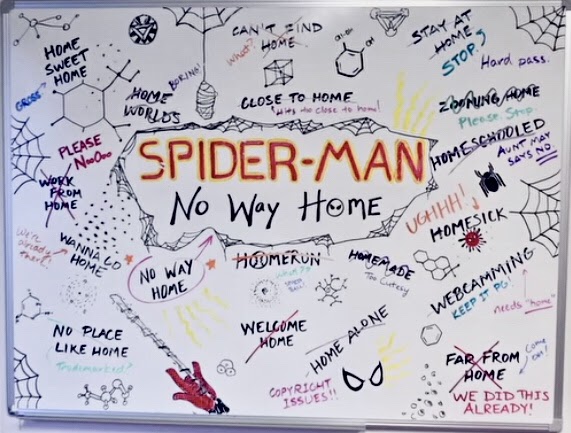 CAN'T FIND
HOME
What?
STAY AT
HOME
STOP.
Hard pass.
HOME
SWEET
HOME
GROSS
BORING!
HOME
WORLDS
CLOSE TO HOME
Hits to close to home!
ZOOMING HOME
Please. Stop.
HOMESCHOOLED
AUNT MAY
SAYS NO.
PLEASE
NooOoo
SPIDER-MAN
No Way Home
WORK
FROM
HOME
UGHHH!
HOMESICK
We're
already
there!
WANNA GO
HOME
NO WAY
HOME
HOOMERUN
What??
HOMEMADE
Too Cutesy
WEBCAMMING
KEEP IT PG!
needs "home"
NO PLACE
LIKE HOME
Trademarked?
WELCOME
HOME
HOME ALONE
COPYRIGHT
ISSUES!!
FAR FROM
HOME
Come
on!
WE DID THIS
ALREADY!